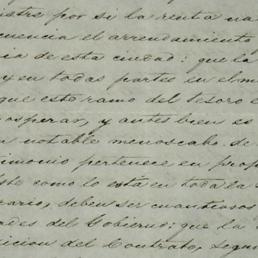 istre por si la renta na
cuencia el arrendamiento
ia de esta ciudad: que la
y en todas partes en el m
que este ramo del tesoro e
osperar, y antes bien es
n notable menoscabo. De
timonio pertenece en prop
ste como lo está en toda la
rario, deben ser cuantiosos
ades del Gobierno: que la
icion del Contrato, segun